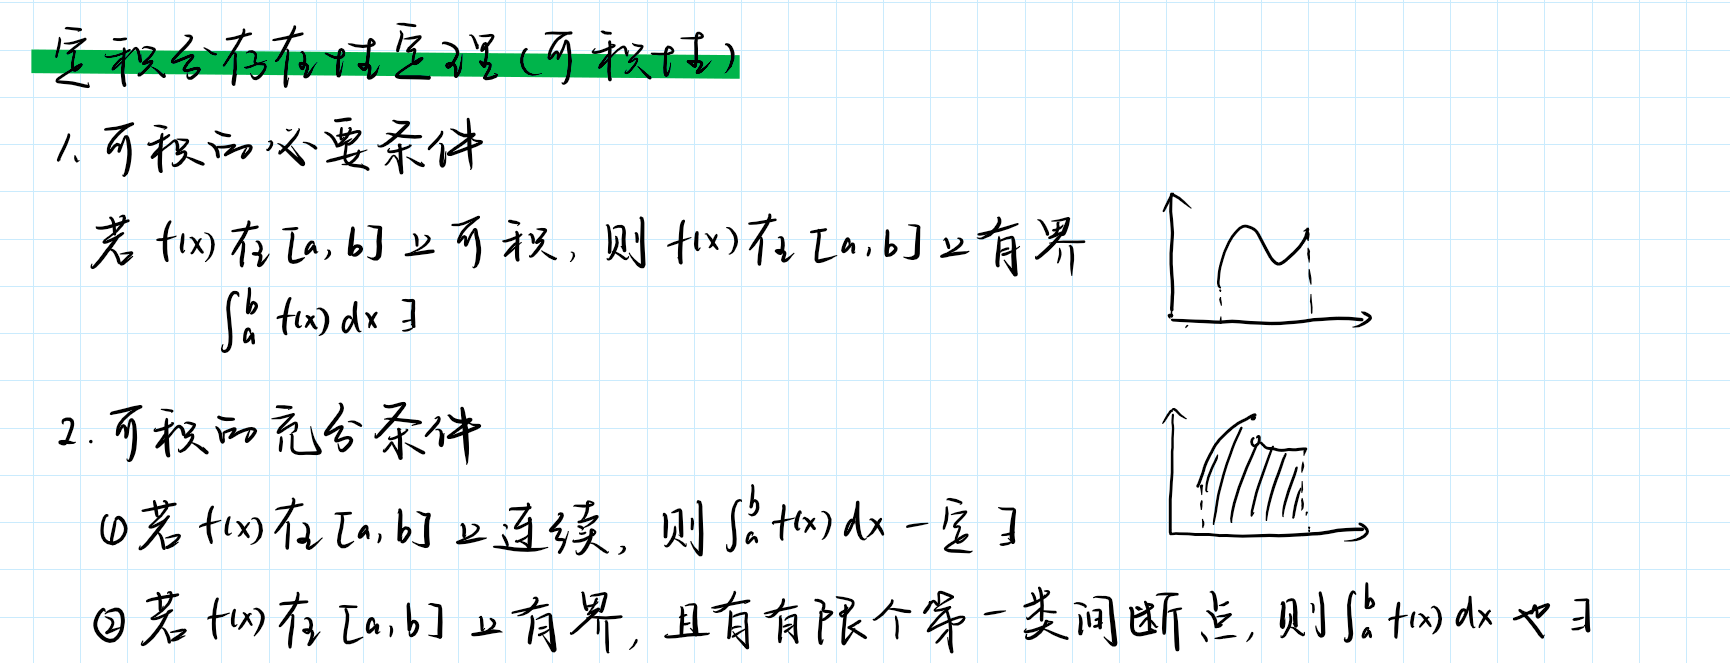 定积分存在性定理(可积性)
1. 可积的必要条件
若 f(x) 在 [a, b] 上可积, 则 f(x) 在 [a, b] 上有界
∫_a^b f(x) dx ∃
2. 可积的充分条件
① 若 f(x) 在 [a, b] 上连续, 则 ∫_a^b f(x) dx 一定 ∃
② 若 f(x) 在 [a, b] 上有界, 且有有限个第一类间断点, 则 ∫_a^b f(x) dx 也 ∃